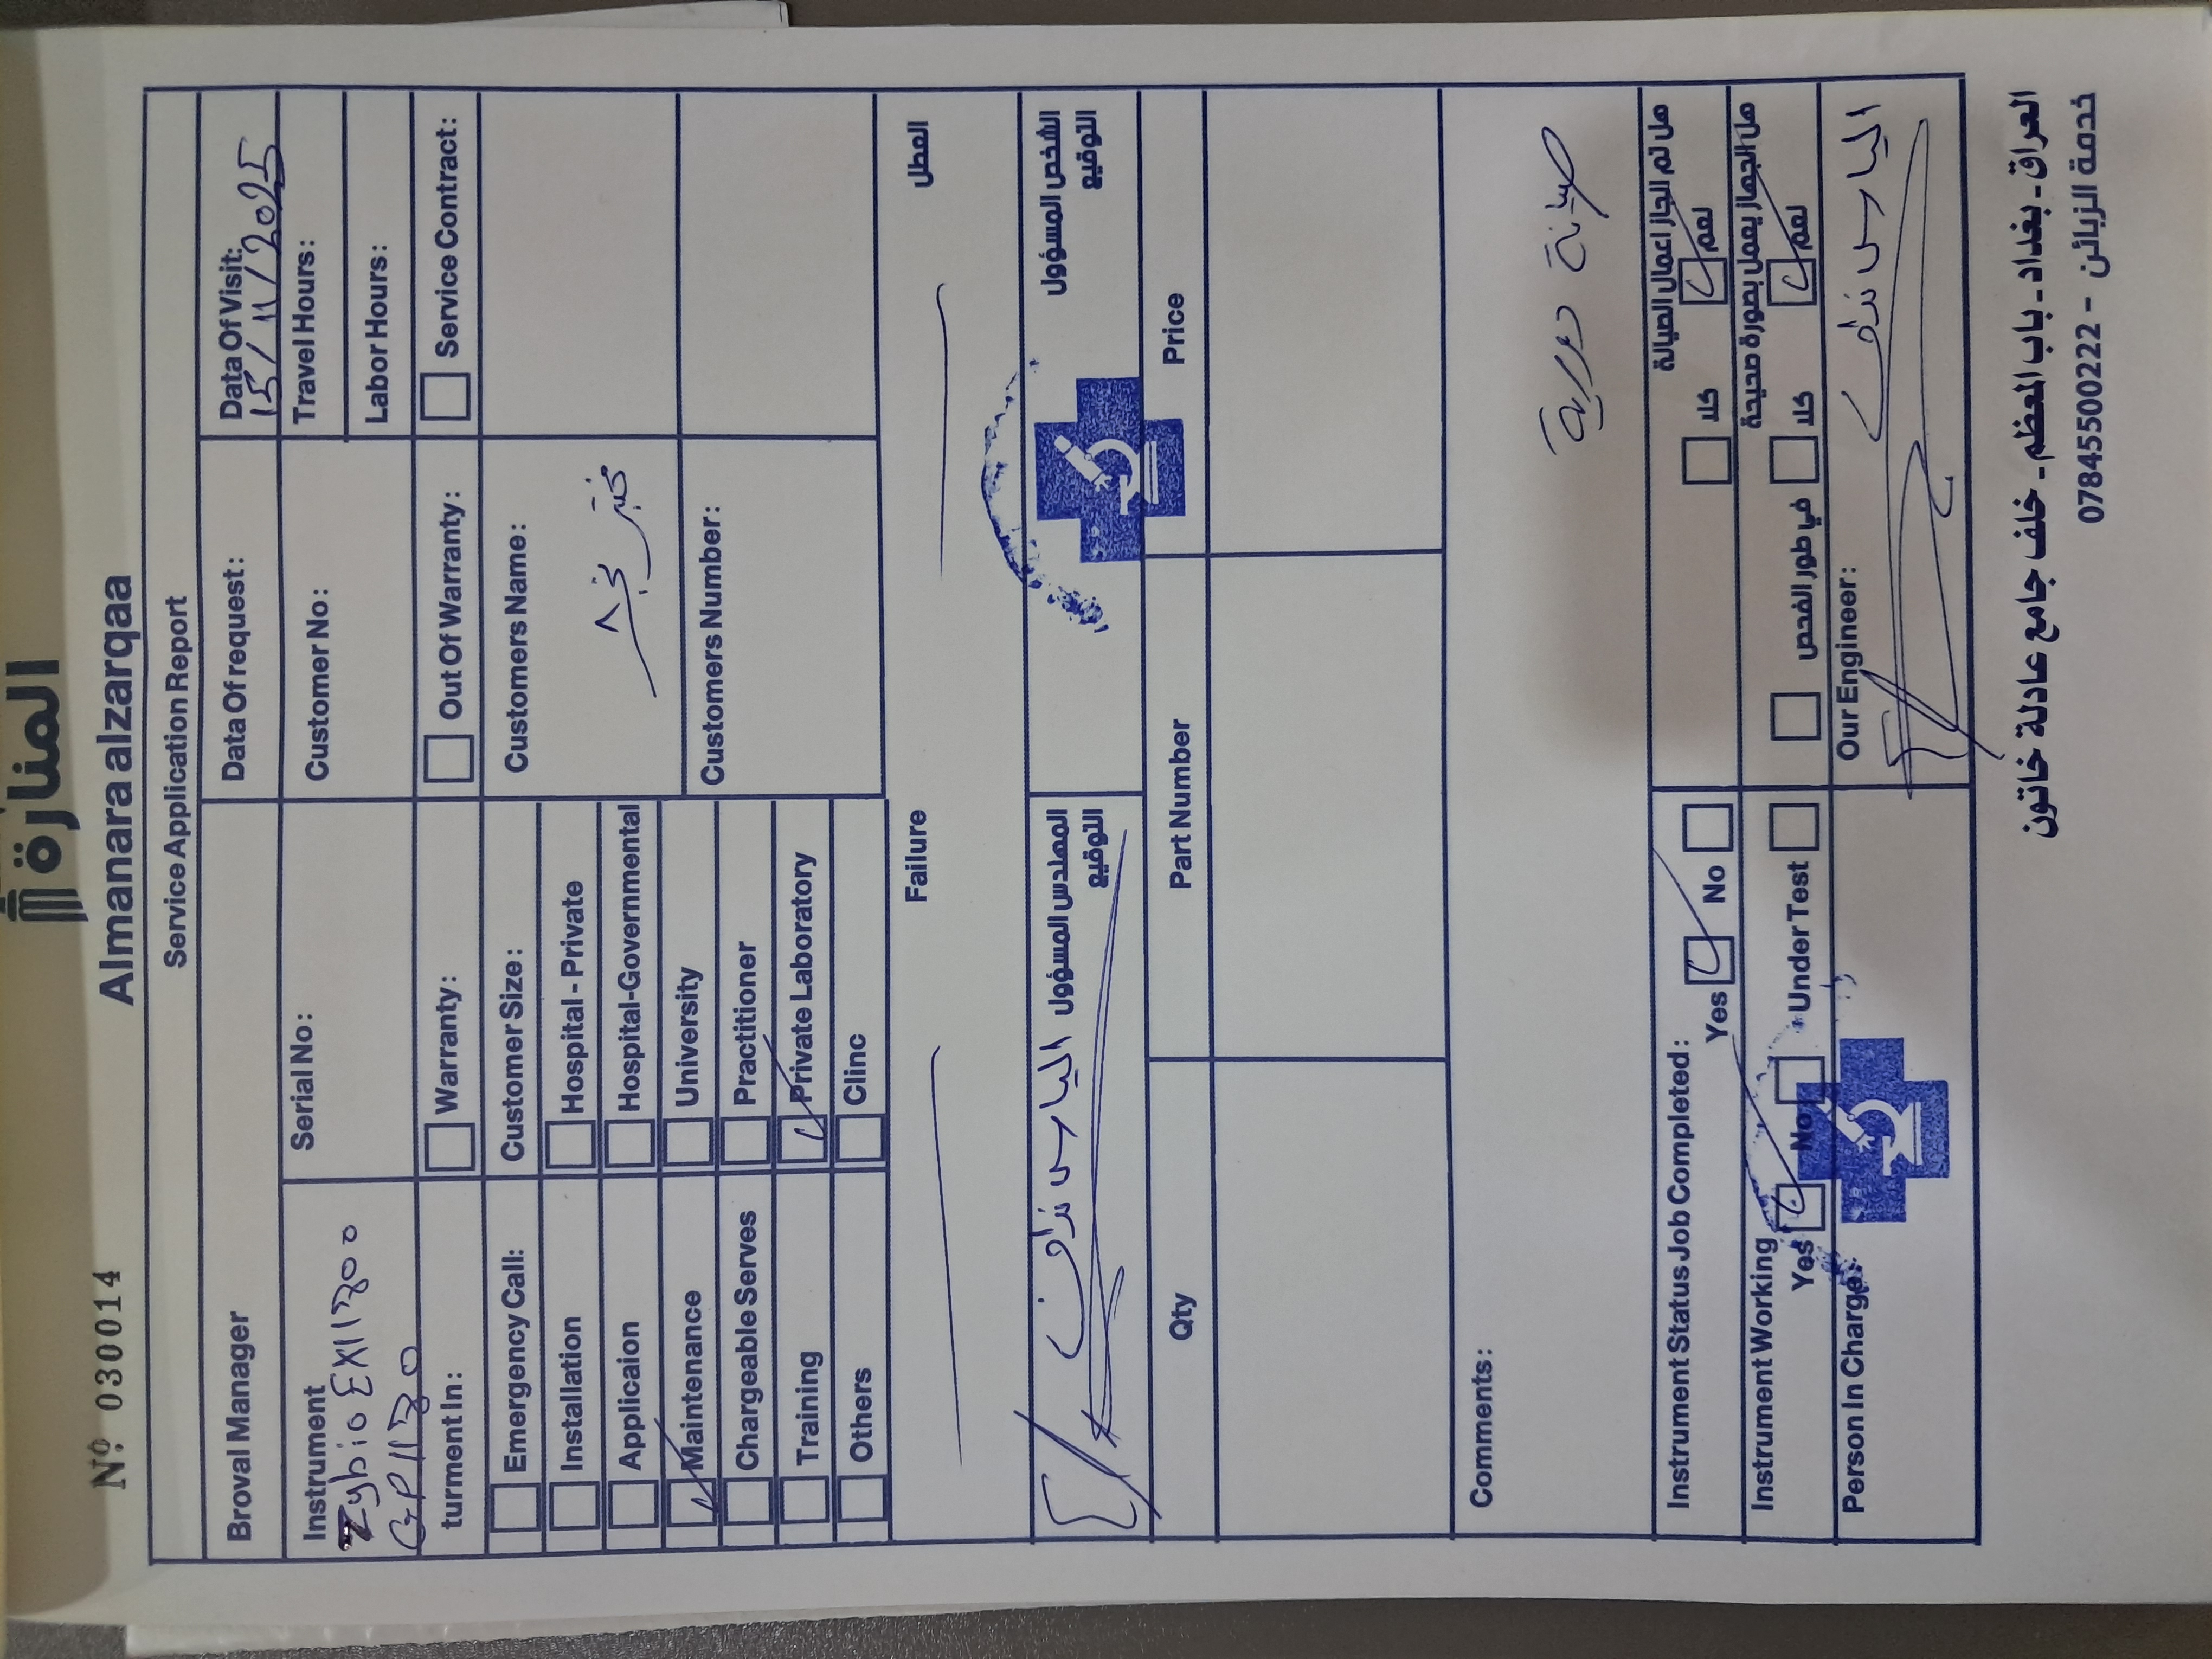 المنارة
Almanara alzarqaa
Nº 030014
Service Application Report
Broval Manager
Data Of request:
Data Of Visit:
15/11/2025
Instrument
Zybio EXI1800
Serial No:
Customer No:
Travel Hours:
Labor Hours:
turment In:
Warranty:
Out Of Warranty:
Service Contract:
Emergency Call:
Customer Size:
Customers Name:
Installation
Hospital - Private
Applicaion
Hospital-Governmental
مختبر
Maintenance
University
Customers Number:
Chargeable Serves
Practitioner
Training
Private Laboratory
Others
Clinc
Failure
العطل
المهندس المسؤول
التوقيع
الشخص المسؤول
التوقيع
Qty
Part Number
Price
Comments:
صيانة دورية
Instrument Status Job Completed:
Yes
No
هل تم انجاز اعمال الصيانة
نعم
كلا
Instrument Working
Yes
No
Under Test
هل الجهاز يعمل بصورة صحيحة
نعم
كلا
في طور الفحص
Person In Charge:
Our Engineer:
العراق - بغداد - باب المعظم - خلف جامع عادلة خاتون
خدمة الزبائن - 07845500222